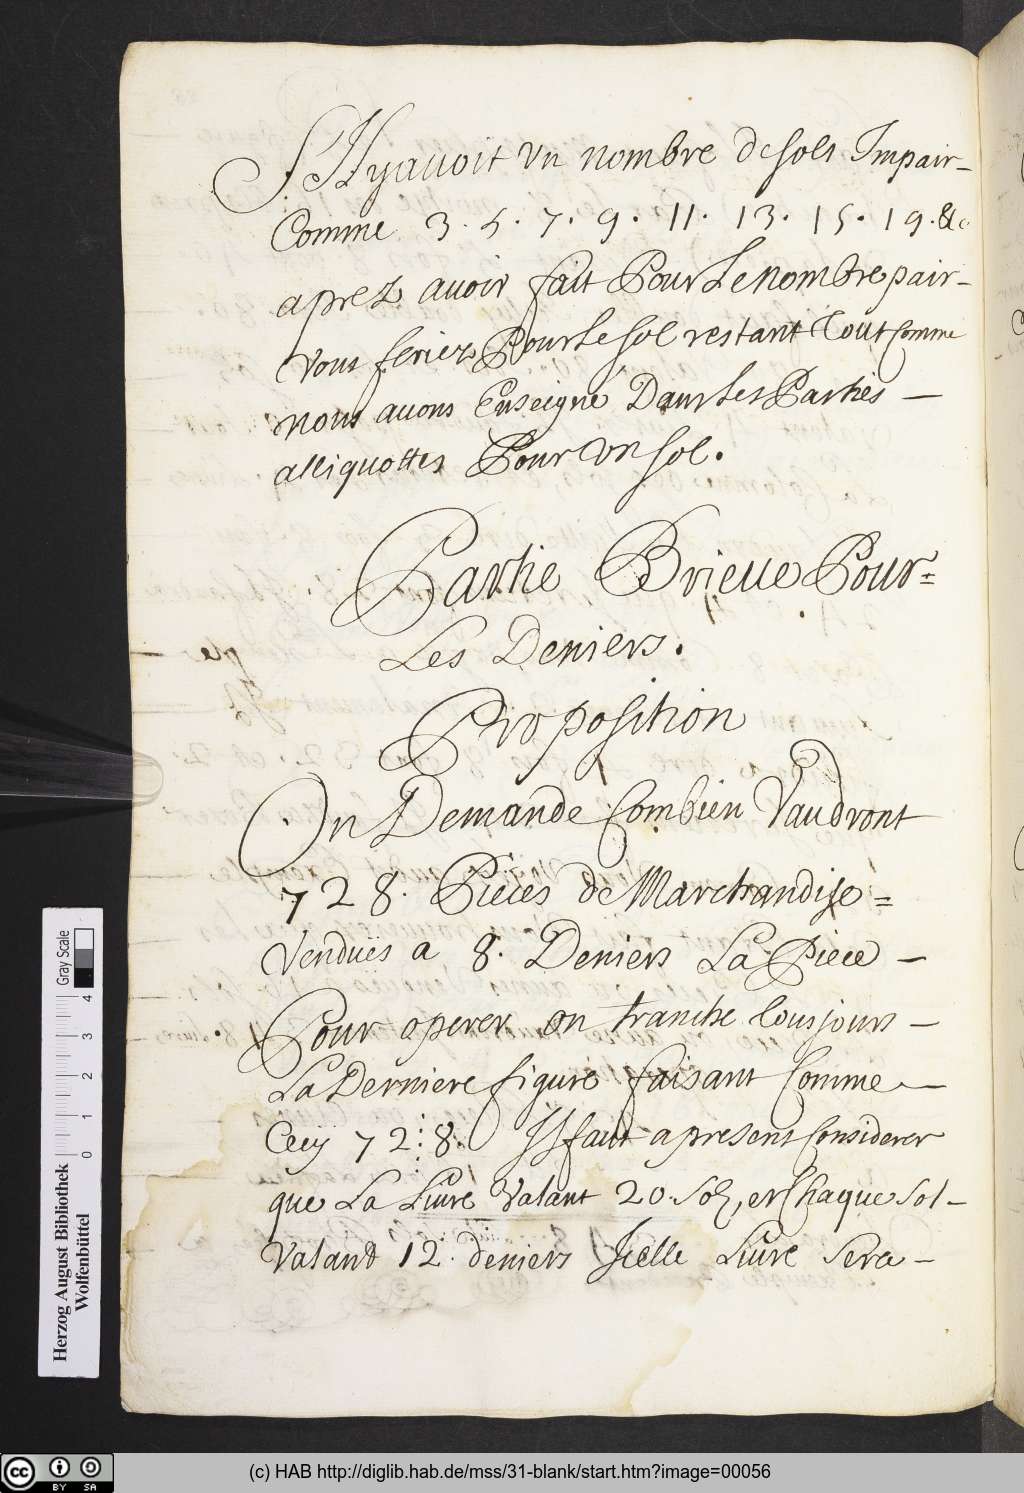 S'Il y auoit un nombre de sols Impair
Comme 3. 5. 7. 9. 11. 13. 15. 19. &c
aprez auoir fait Pour Le nombre pair
vous feriez Pour Le sol restant Tout comme
nous auons Enseigné Dans Les Parties
alliquottes Pour Un sol.
Partie Brieue Pour
Les Deniers.
Proposition
On Demande Combien Vaudront
728. Pieces de Marchandise
Venduës a 8. Deniers La Piece
Pour operer on tranche tousjours
La Derniere figure faisant Comme
Cecy 72:8. Il faut apresent Considerer
que La Liure Valant 20. sols, et Chaque sol
Valand 12. deniers Icelle Liure sera
Herzog August Bibliothek
Wolfenbüttel
0 1 2 3 4
Gray Scale
CC BY SA
(c) HAB http://diglib.hab.de/mss/31-blank/start.htm?image=00056